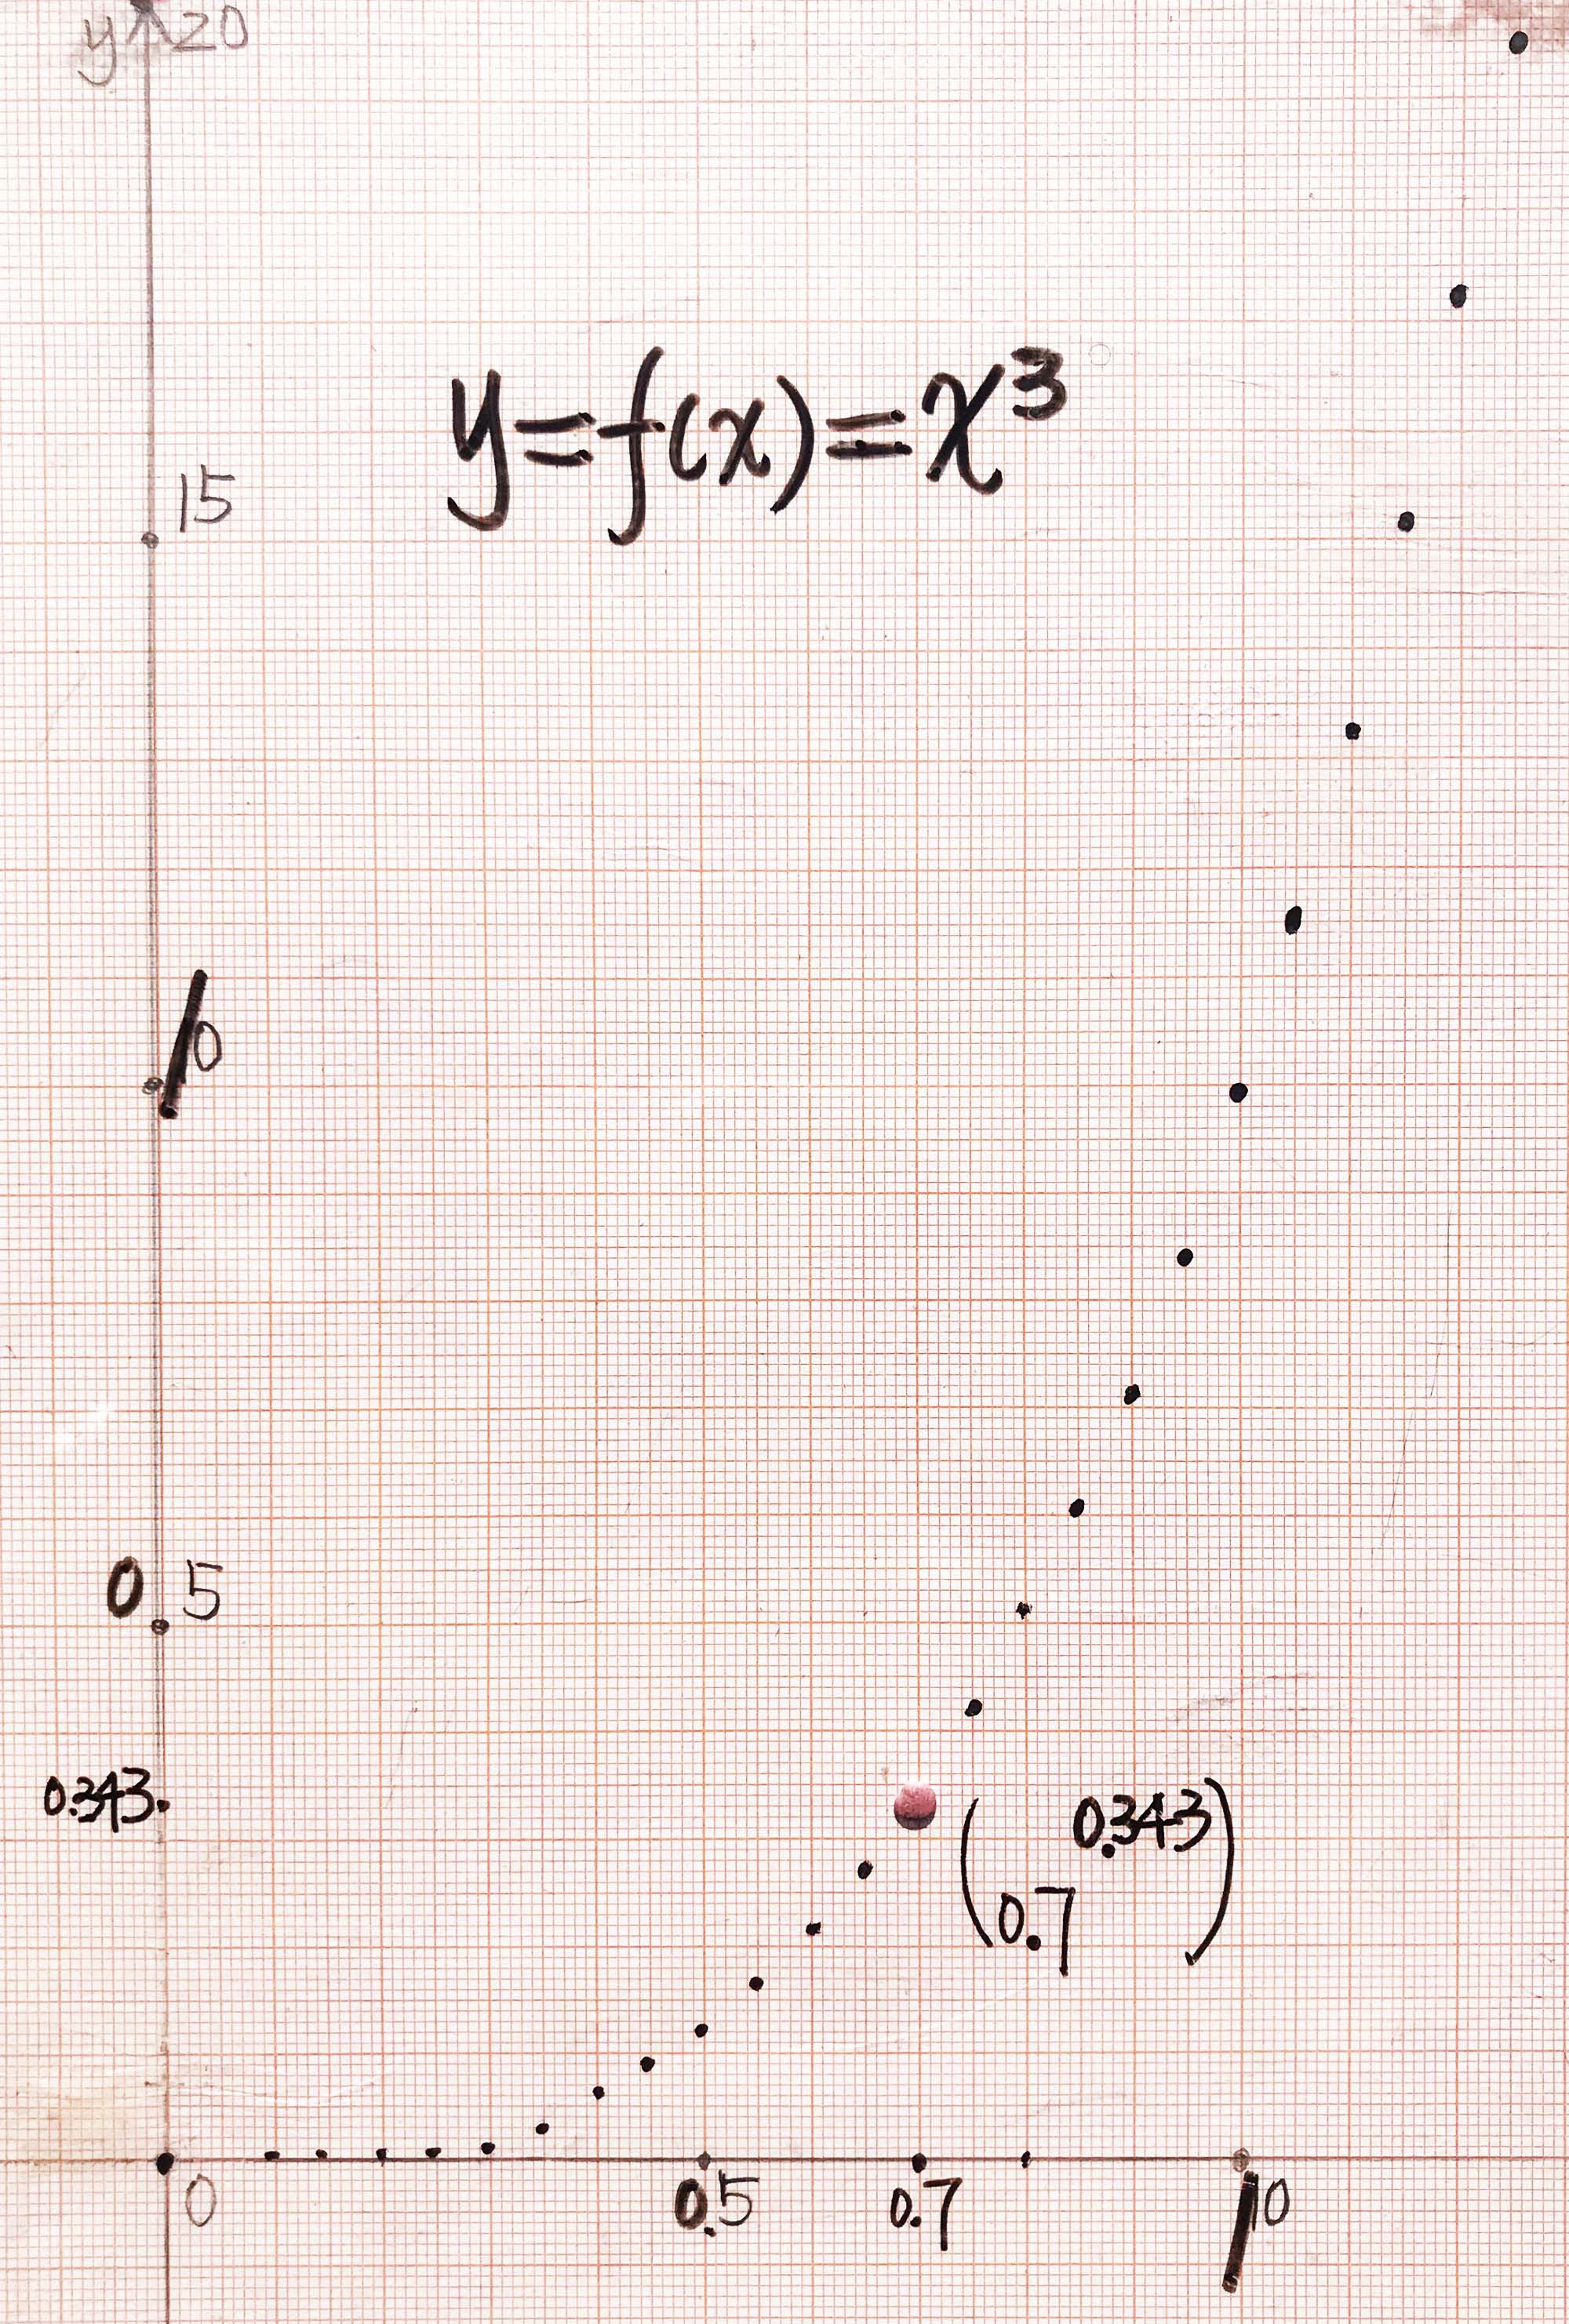 y 20
y=f(x)=x³
15
10
0.5
0.343
(0.7 0.343)
0 0.5 0.7 10